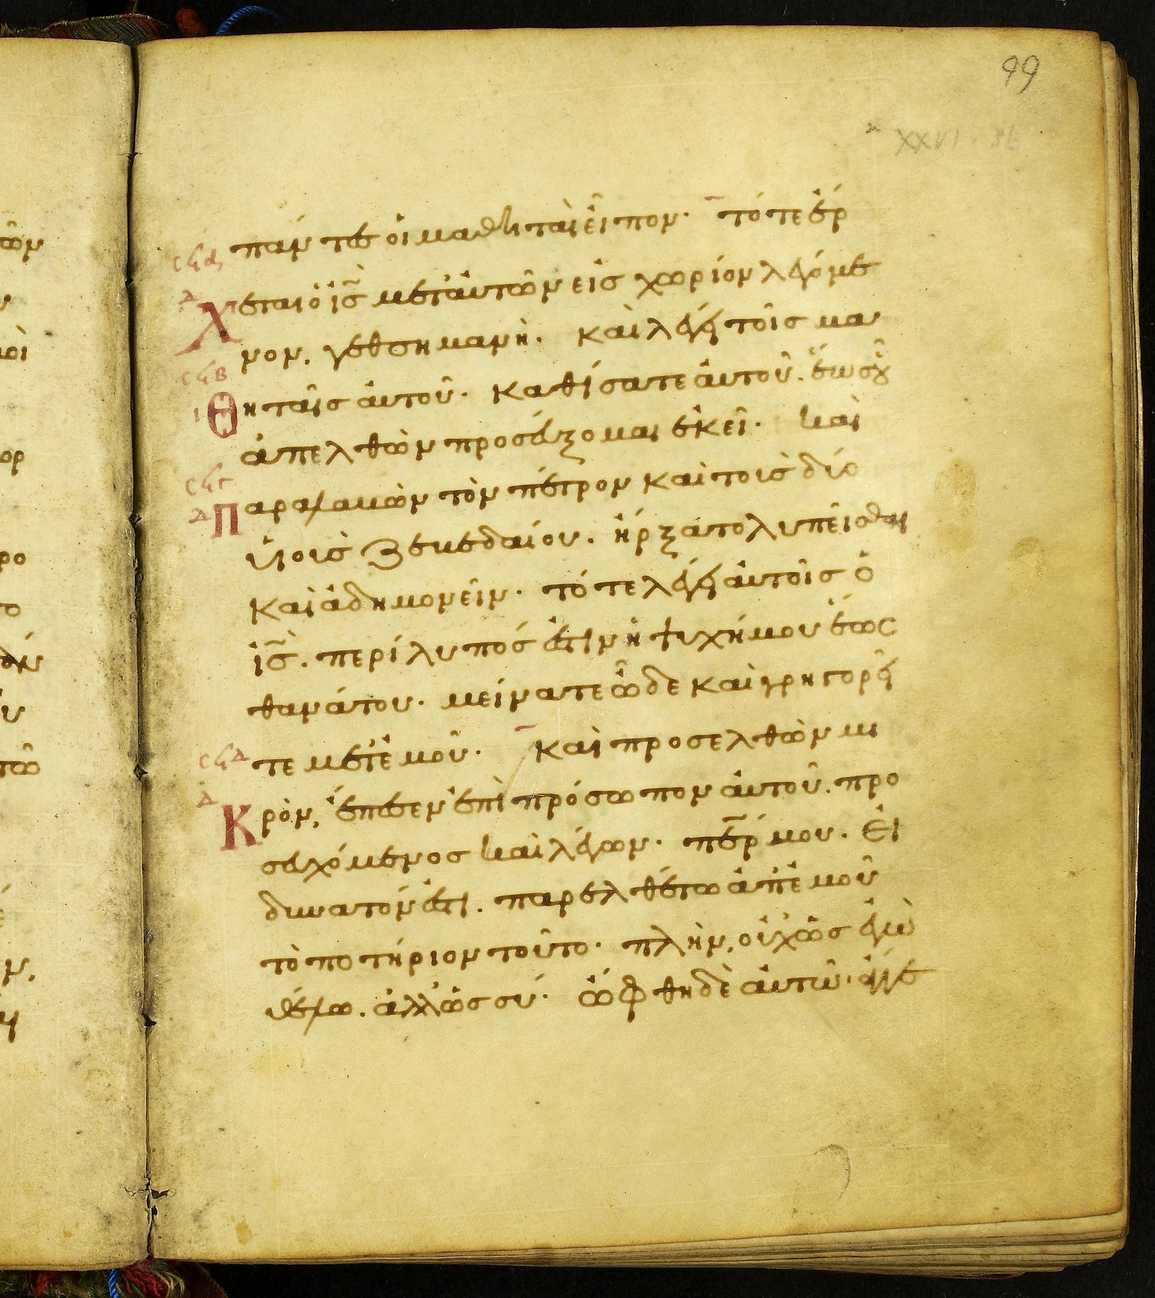 99
XXVI · 36
πάντες οἱ μαθηταὶ εἶπον· τότε ἔρ
χεται ὁ ἰς μετ' αὐτῶν εἰς χωρίον λεγόμε
νον, γεθσημανὴ. καὶ λέγει τοῖς μα
θηταῖς αὐτοῦ· καθίσατε αὐτοῦ. ἕως οὗ
ἀπελθὼν προσεύξομαι ἐκεῖ· καὶ
παραλαβὼν τὸν πέτρον καὶ τοὺς δύο
υἱοὺς ζεβεδαίου. ἤρξατο λυπεῖσθαι
καὶ ἀδημονεῖν· τότε λέγει αὐτοῖς ὁ
ἰς. περίλυπός ἐστιν ἡ ψυχή μου ἕως
θανάτου· μείνατε ὧδε καὶ γρηγορεῖ
τε μετ' ἐμοῦ· καὶ προσελθὼν μι
κρὸν, ἔπεσεν ἐπὶ πρόσωπον αὐτοῦ. προ
σευχόμενος καὶ λέγων· περ μου. Εἰ
δυνατόν ἐστι. παρελθέτω ἀπ' ἐμοῦ
τὸ ποτήριον τοῦτο· πλὴν, οὐχ ὡς ἐγὼ
θέλω. ἀλλ' ὡς σύ· ὤφθη δὲ αὐτῶ· ἄγγε